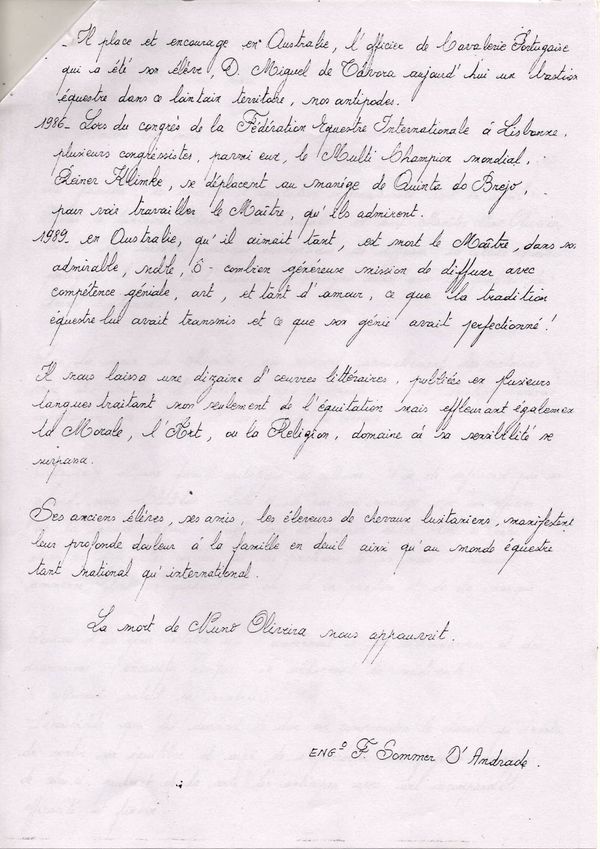 _ Il place et encourage en Australie, l'officier de Cavalerie Portugaise
qui a été son élève, D. Miguel de Távora aujourd'hui un bastion
équestre dans ce lointain territoire, nos antipodes.
1986_ Lors du congrès de la Fédération Equestre Internationale à Lisbonne,
plusieurs congressistes, parmi eux, le Multi Champion mondial,
Reiner Klimke, se déplacent au manège de Quinta do Brejo,
pour voir travailler le Maître, qu'ils admirent.
1989_ en Australie, qu'il aimait tant, est mort le Maître, dans sa
admirable, noble, ô - combien généreuse mission de diffuser avec
compétence géniale, art, et tant d'amour, ce que la tradition
équestre lui avait transmis et ce que son génie avait perfectionné!
Il nous laissa une dizaine d'œuvres littéraires, publiées en plusieurs
langues traitant non seulement de l'équitation mais effleurant égalemen
la Morale, l'Art, ou la Religion, domaine où sa sensibilité se
surpassa.
Ses anciens élèves, ses amis, les éleveurs de chevaux lusitaniens, manifestent
leur profonde douleur à la famille en deuil ainsi qu'au monde équestre
tant national qu'international.
La mort de Nuno Oliveira nous appauvrit.
ENGº F. Sommer D'Andrade.